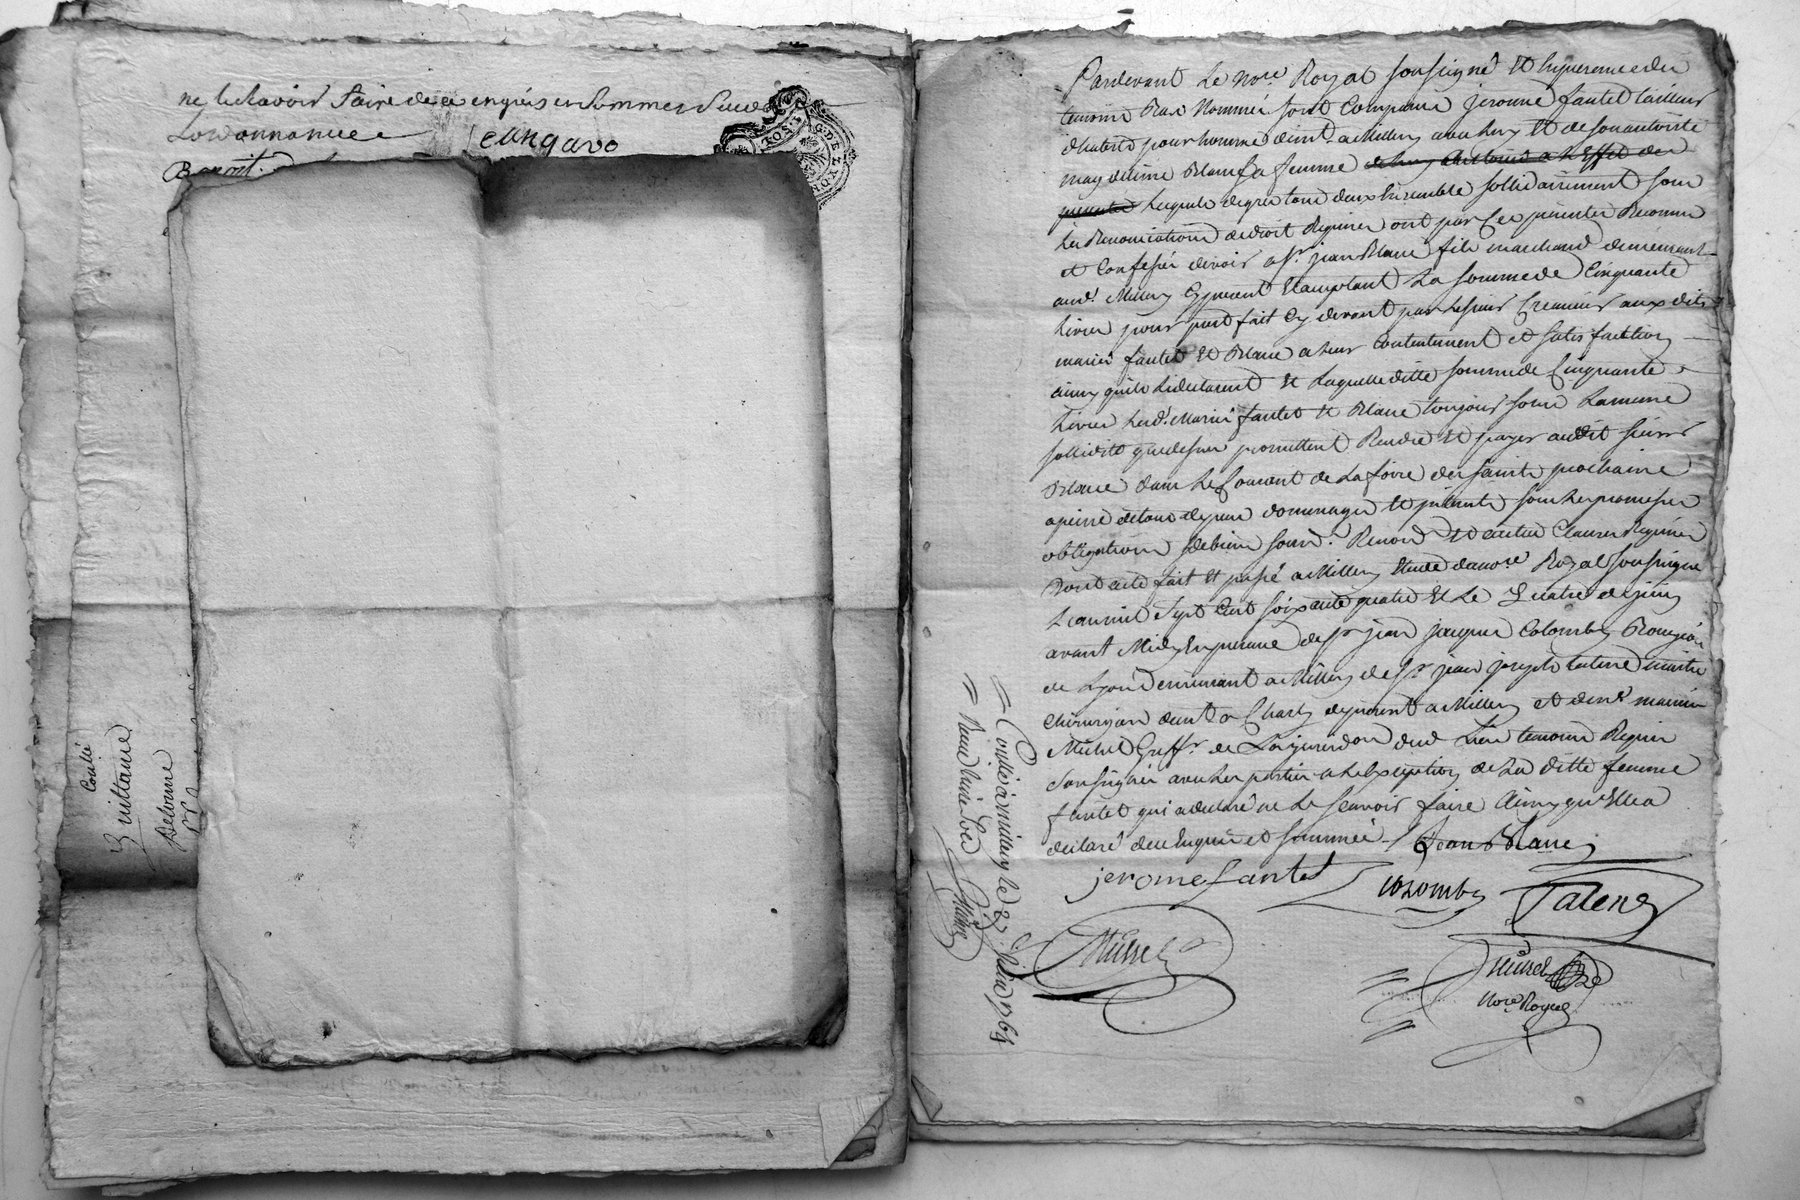 ne le scavoir faire de ce enquis et sommés suivant
Lordonnance
Jean gavo
Benoit
Coulié
Quittance
Delorme
Pardevant Le no.re Royal soussigné Et En presence des
temoins Bas Nommés sont Comparus jerome fautet tailleur
d'habits pour homme dem.t a Millery avec luy Et de son autorité
magdelaine Blanc sa femme
Lesquels de gré tous deux Ensemble sollidairement sous
Les Renonciations de droit Requises ont par Ces presentes Reconnu
et Confessé devoir a s.r jean Blanc fils marchand demeurant
aud.t Millery Cy present Et acceptant La somme de Cinquante
livres pour prest fait Cy devant par le sieur Creancier aux dits
mariés fautet Et Blanc a leur Contentement et satisfaction
ainsy qu'ils le declarent Et Laquelle ditte somme de Cinquante
Livres Lesd.t Mariés fautet Et Blanc toujours sous La meme
sollidité que dessus promettent Rendre Et payer audit sieur
Blanc dans le Courant de La foire des saints prochaine
a peine de tous depens dommages Et interets sous les promesses
obligations de biens soum.s Renon.s Et autres Clauses Requises
Dont acte fait Et passé a Millery Etude du no.re Royal soussigné
L'an mil Sept Cent soixante quatre Et Le Quatre de juin
avant Midy En presence de s.r jean jacques Colomby Bourgeois
de Lyon demeurant a Millery de s.r jean joseph talene maitre
chirurgien dem.t a Charly de present a Millery et de m.e
Michel Greff.r de La jurisdon dud. Lieu temoins Requis
soussignés avec les parties a L'exception de La ditte femme
fautet qui a declaré ne Le scavoir faire Ainsy qu'Elle a
declaré de ce Enquise et sommée Jean Blanc
jerome fautet Colomby Talene
Michel
Michel
No.re Royal
Con.llé a millery le juin 1764
Reçu